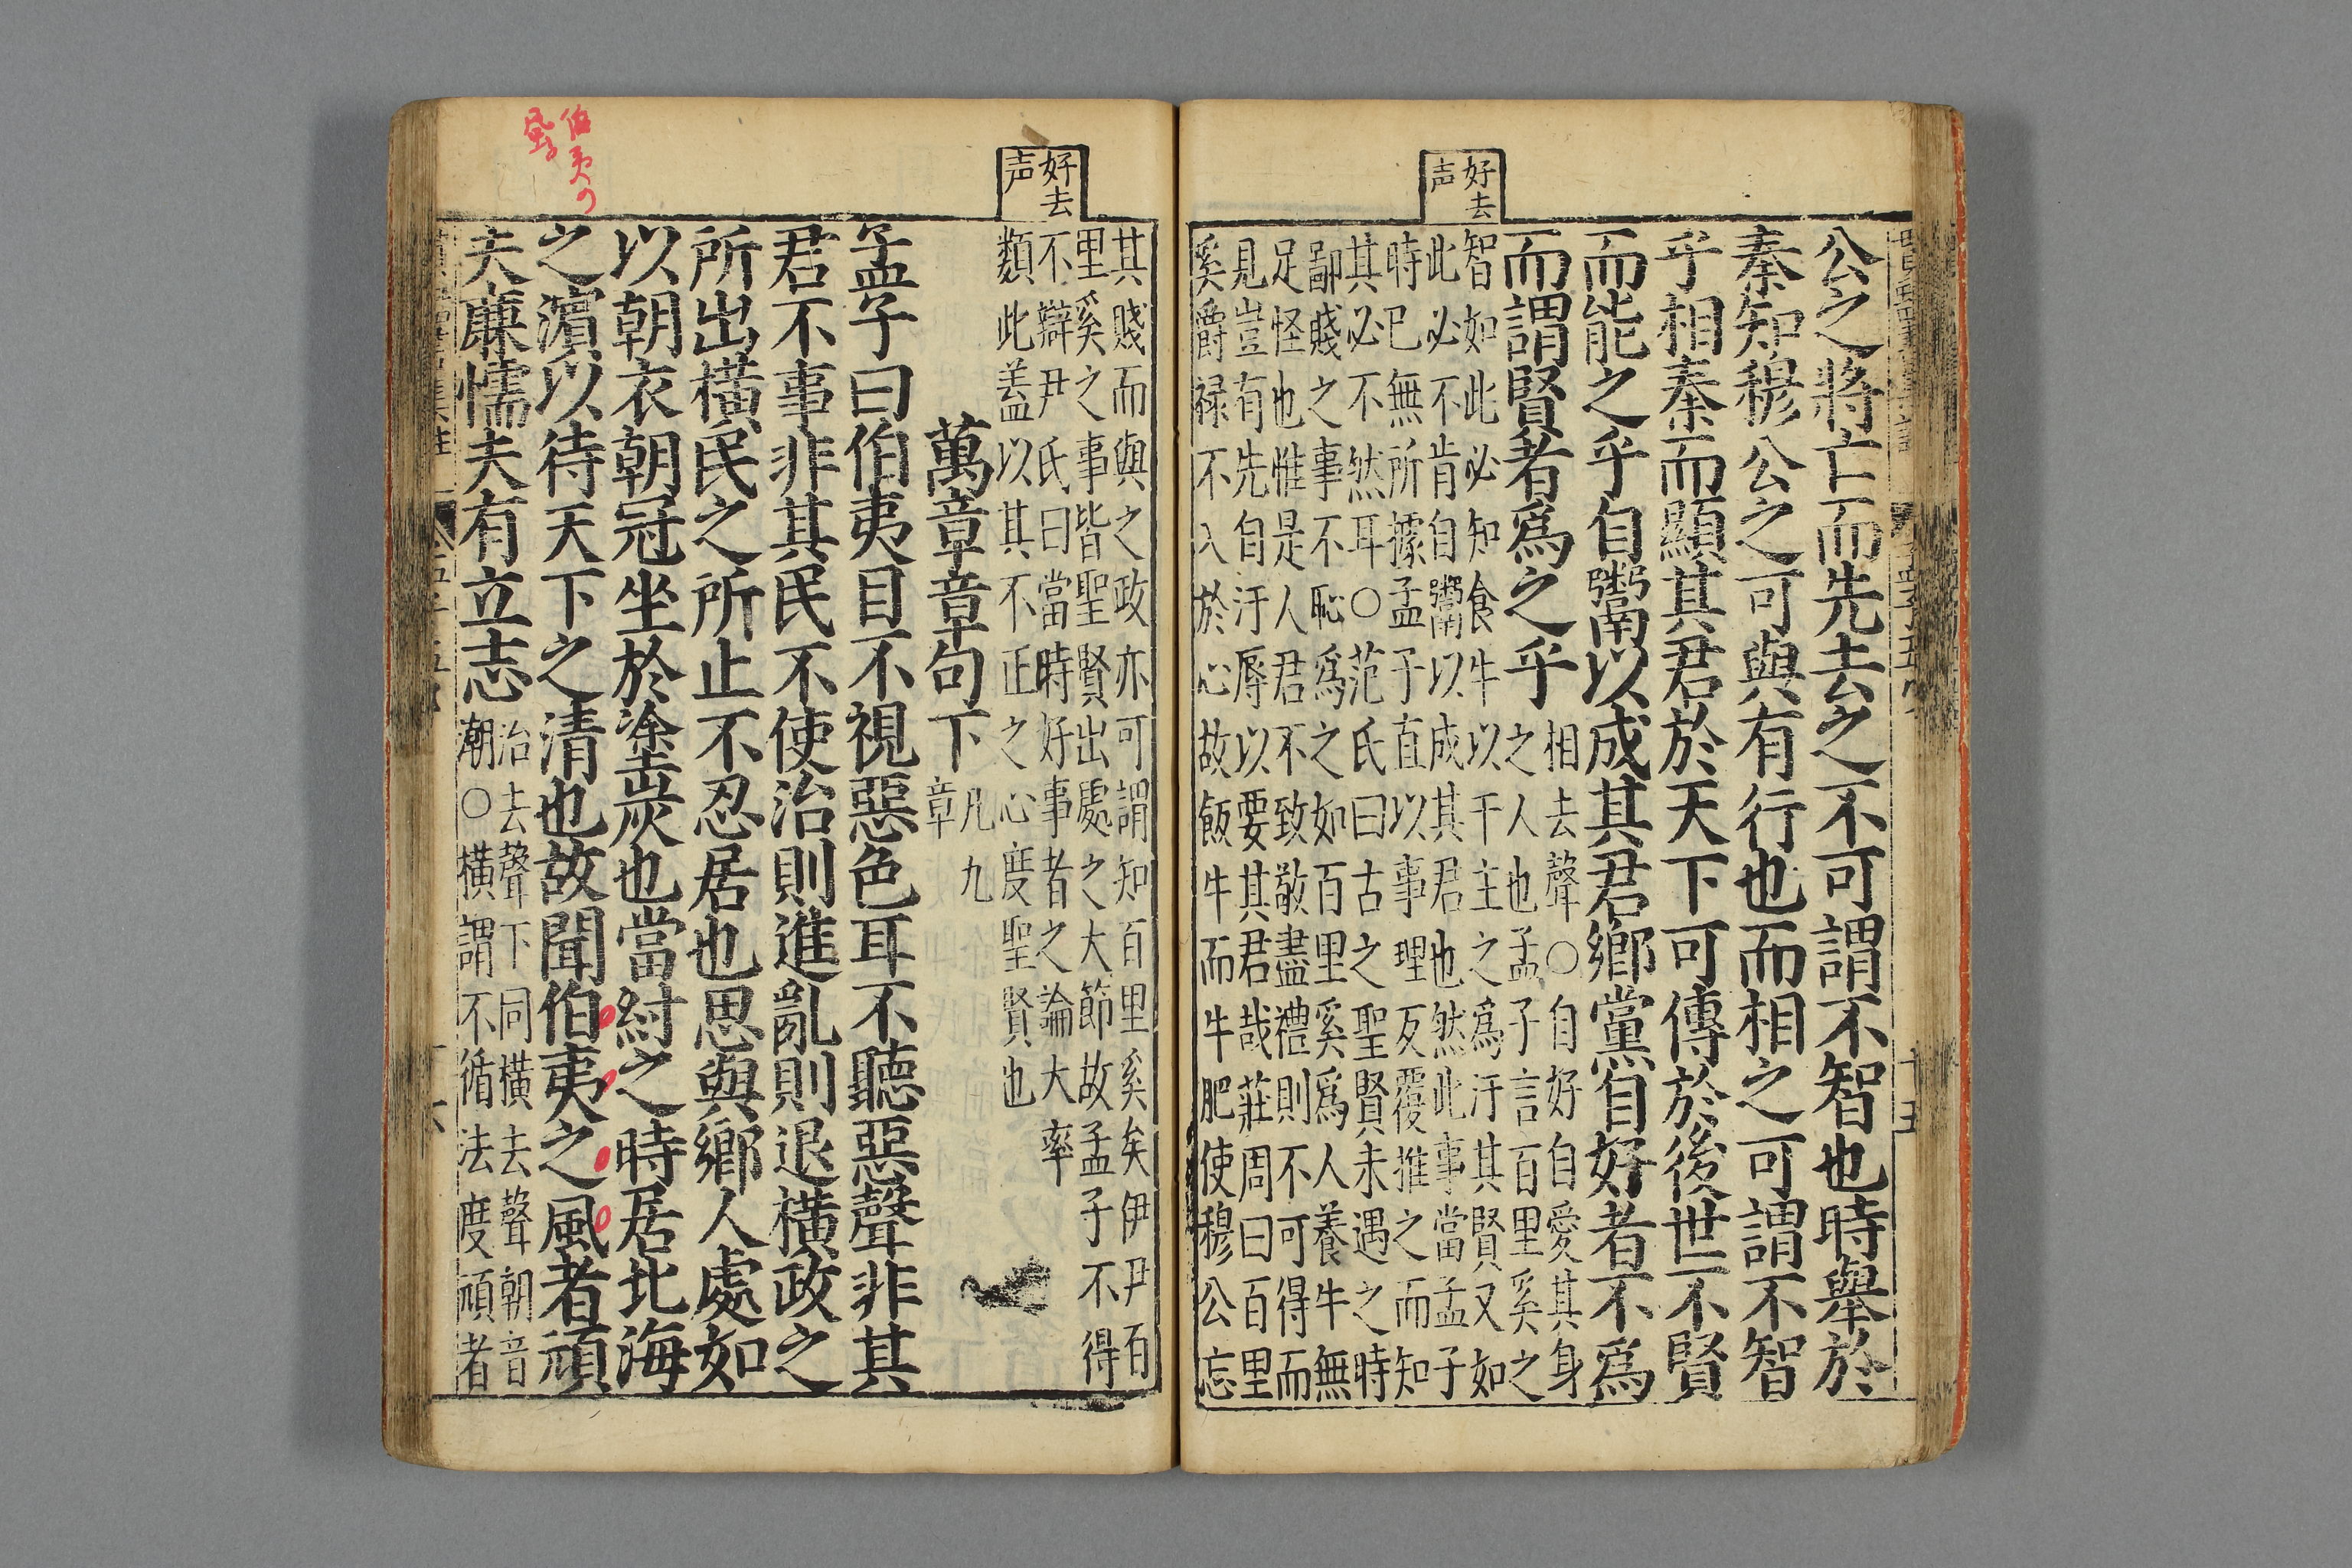 好去
声
公之將亡而先去之不可謂不智也時舉於
秦知穆公之可與有行也而相之可謂不智
乎相秦而顯其君於天下可傳於後世不賢
而能之乎自鬻以成其君鄉黨自好者不爲
而謂賢者爲之乎
相去聲○自好自愛其身
之人也孟子言百里奚之
智如此必知食牛以干主之爲汙其賢又如
此必不肯自鬻以成其君也然此事當孟子
時已無所據孟子直以事理反覆推之而知
其必不然耳○范氏曰古之聖賢未遇之時
鄙賤之事不恥爲之如百里奚爲人養牛無
足怪也惟是人君不致敬盡禮則不可得而
見豈有先自汙辱以要其君哉莊周曰百里
奚爵祿不入於心故飯牛而牛肥使穆公忘
好去
声
其賤而與之政亦可謂知百里奚矣伊尹百
里奚之事皆聖賢出處之大節故孟子不得
不辯尹氏曰當時好事者之論大率
類此盖以其不正之心度聖賢也
萬章章句下
凡九
章
孟子曰伯夷目不視惡色耳不聽惡聲非其
君不事非其民不使治則進亂則退橫政之
所出橫民之所止不忍居也思與鄉人處如
以朝衣朝冠坐於塗炭也當紂之時居北海
之濵以待天下之清也故聞伯夷之風者頑
夫廉懦夫有立志
治去聲下同橫去聲朝音
潮○橫謂不循法度頑者
伯夷の